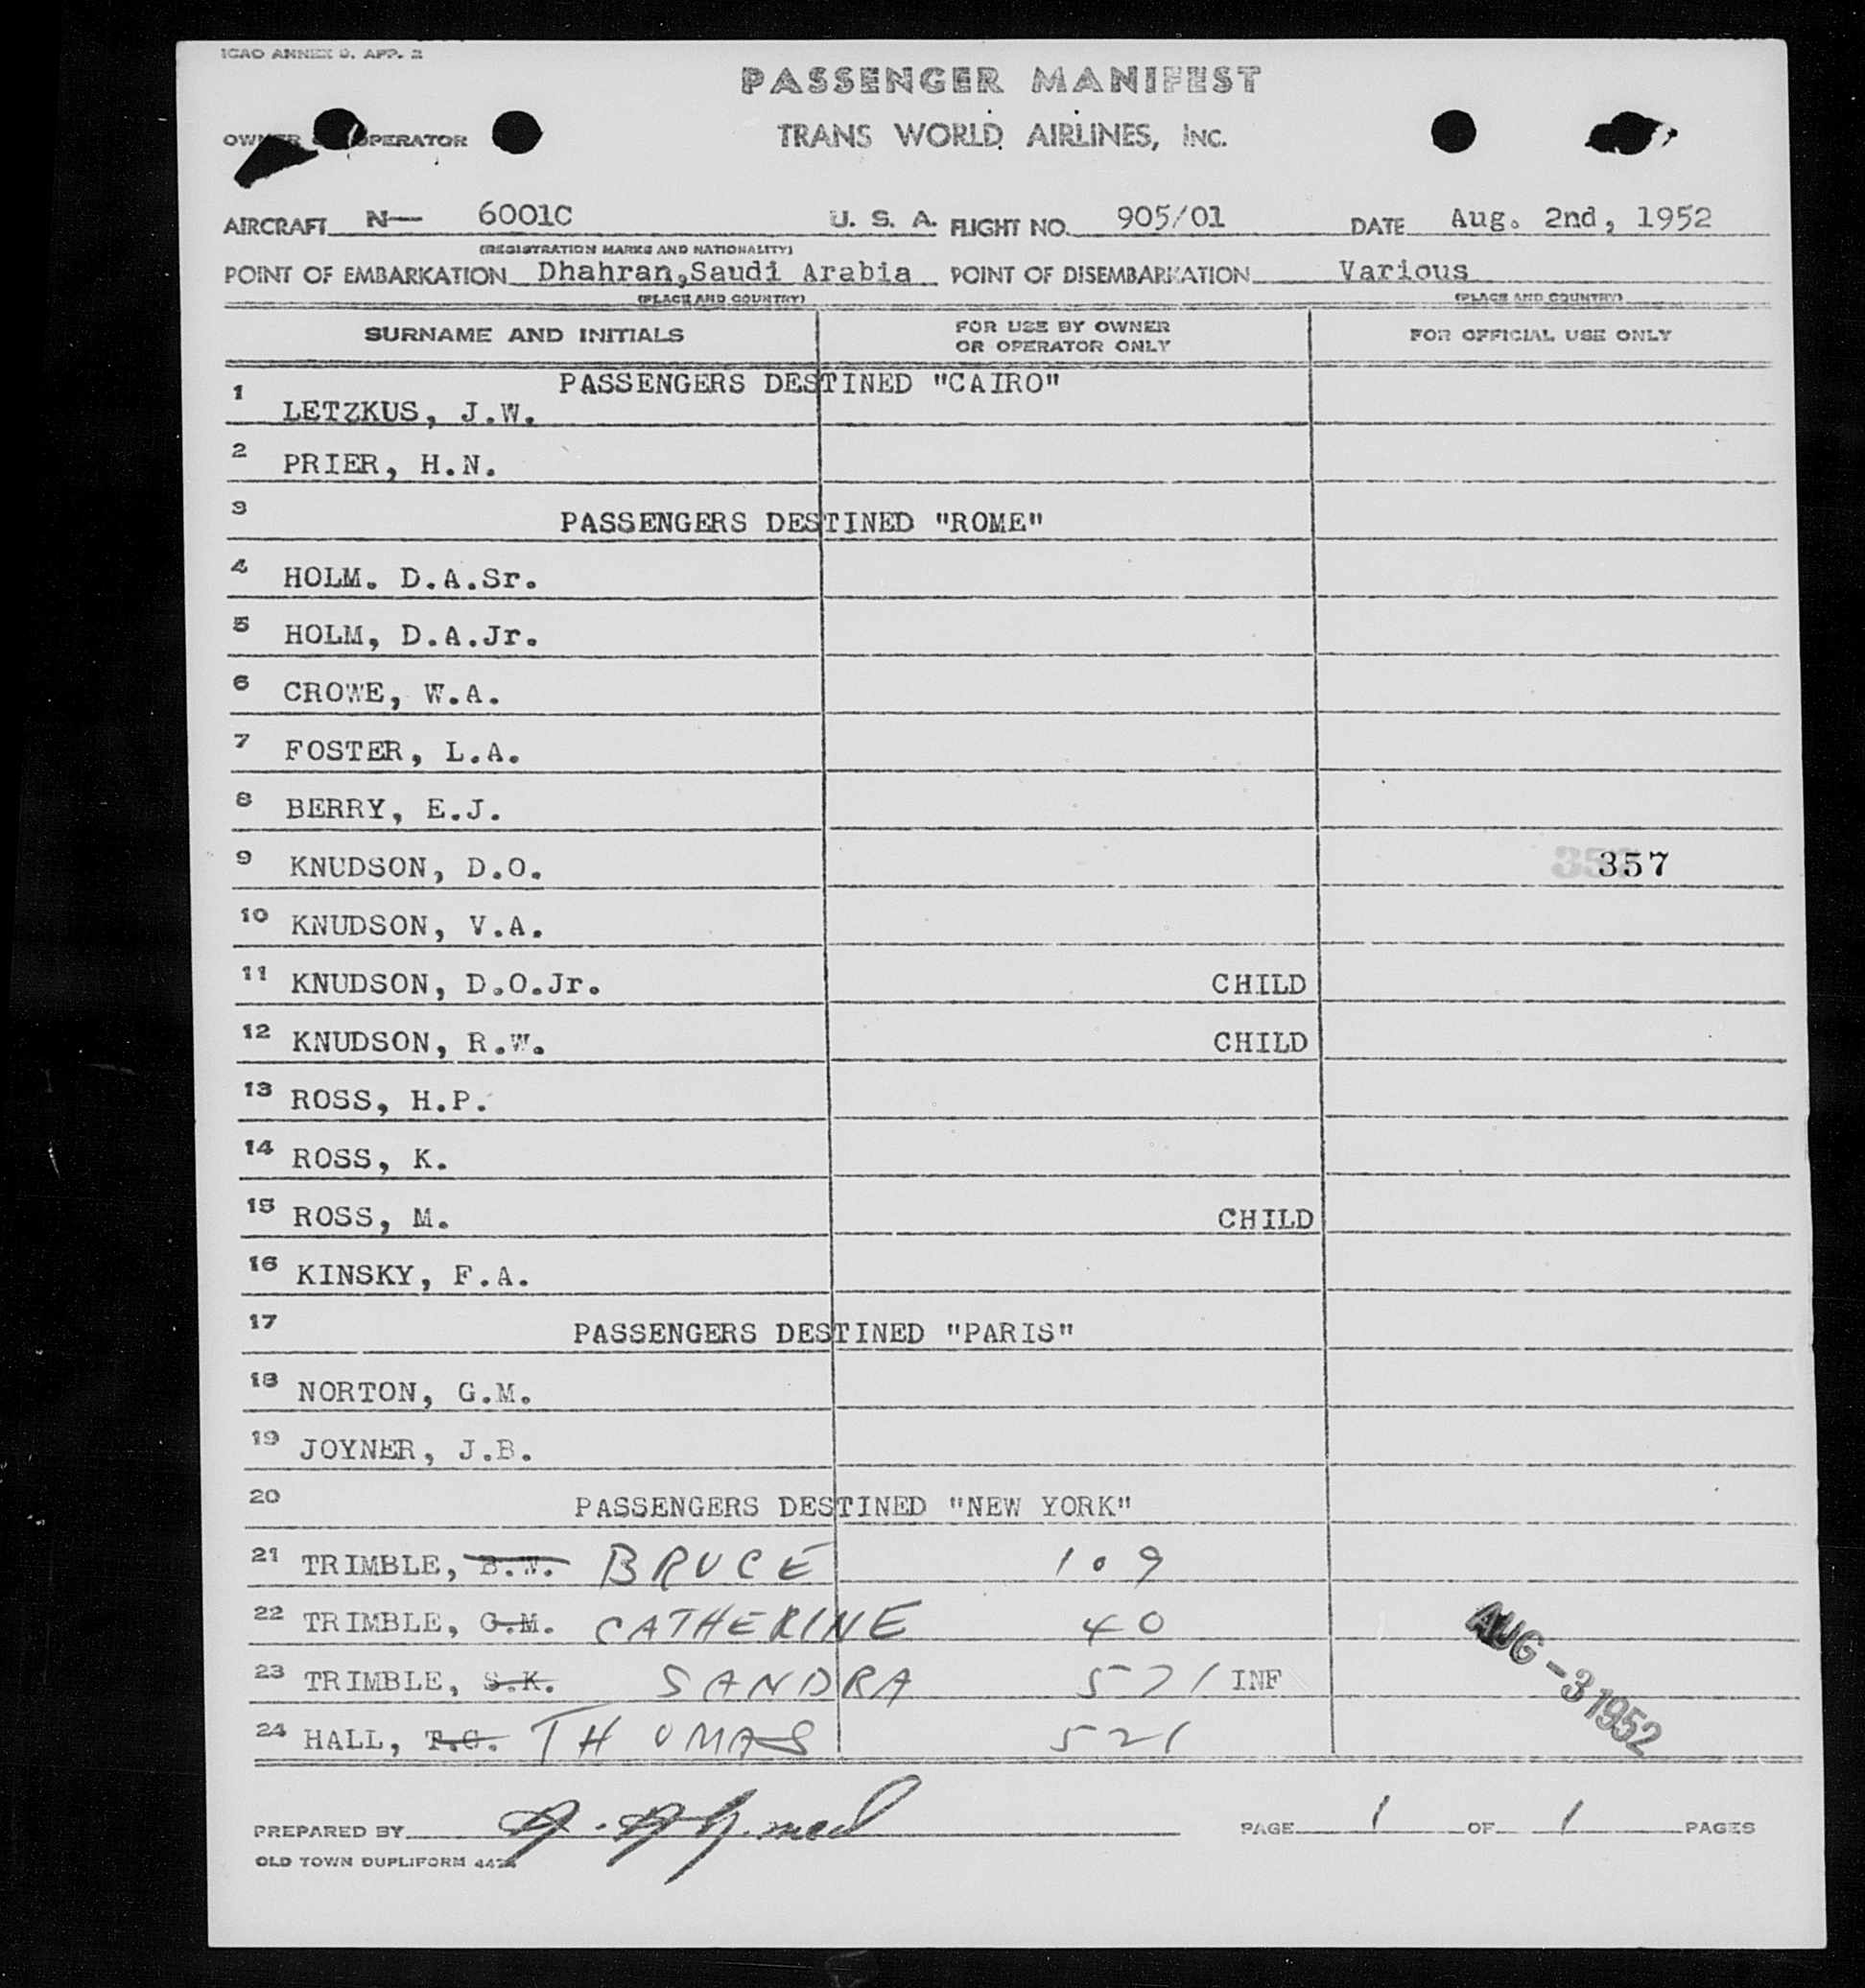 ICAO ANNEX 9. APP. 2
PASSENGER MANIFEST
OWNER OPERATOR TRANS WORLD AIRLINES, INC.
AIRCRAFT N— 6001C U. S. A. FLIGHT NO. 905/01 DATE Aug. 2nd, 1952
(REGISTRATION MARKS AND NATIONALITY)
POINT OF EMBARKATION Dhahran,Saudi Arabia POINT OF DISEMBARKATION Various
(PLACE AND COUNTRY) (PLACE AND COUNTRY)
SURNAME AND INITIALS FOR USE BY OWNER OR OPERATOR ONLY FOR OFFICIAL USE ONLY
PASSENGERS DESTINED "CAIRO"
1 LETZKUS, J.W.
2 PRIER, H.N.
3 PASSENGERS DESTINED "ROME"
4 HOLM. D.A.Sr.
5 HOLM, D.A.Jr.
6 CROWE, W.A.
7 FOSTER, L.A.
8 BERRY, E.J.
9 KNUDSON, D.O. 357
10 KNUDSON, V.A.
11 KNUDSON, D.O.Jr. CHILD
12 KNUDSON, R.W. CHILD
13 ROSS, H.P.
14 ROSS, K.
15 ROSS, M. CHILD
16 KINSKY, F.A.
17 PASSENGERS DESTINED "PARIS"
18 NORTON, G.M.
19 JOYNER, J.B.
20 PASSENGERS DESTINED "NEW YORK"
21 TRIMBLE, B.W. BRUCE 109
22 TRIMBLE, G.M. CATHERINE 40
23 TRIMBLE, S.K. SANDRA 521 INF
24 HALL, T.G. THOMAS 521
AUG -3 1952
PREPARED BY A. Ahmed PAGE 1 OF 1 PAGES
OLD TOWN DUPLIFORM